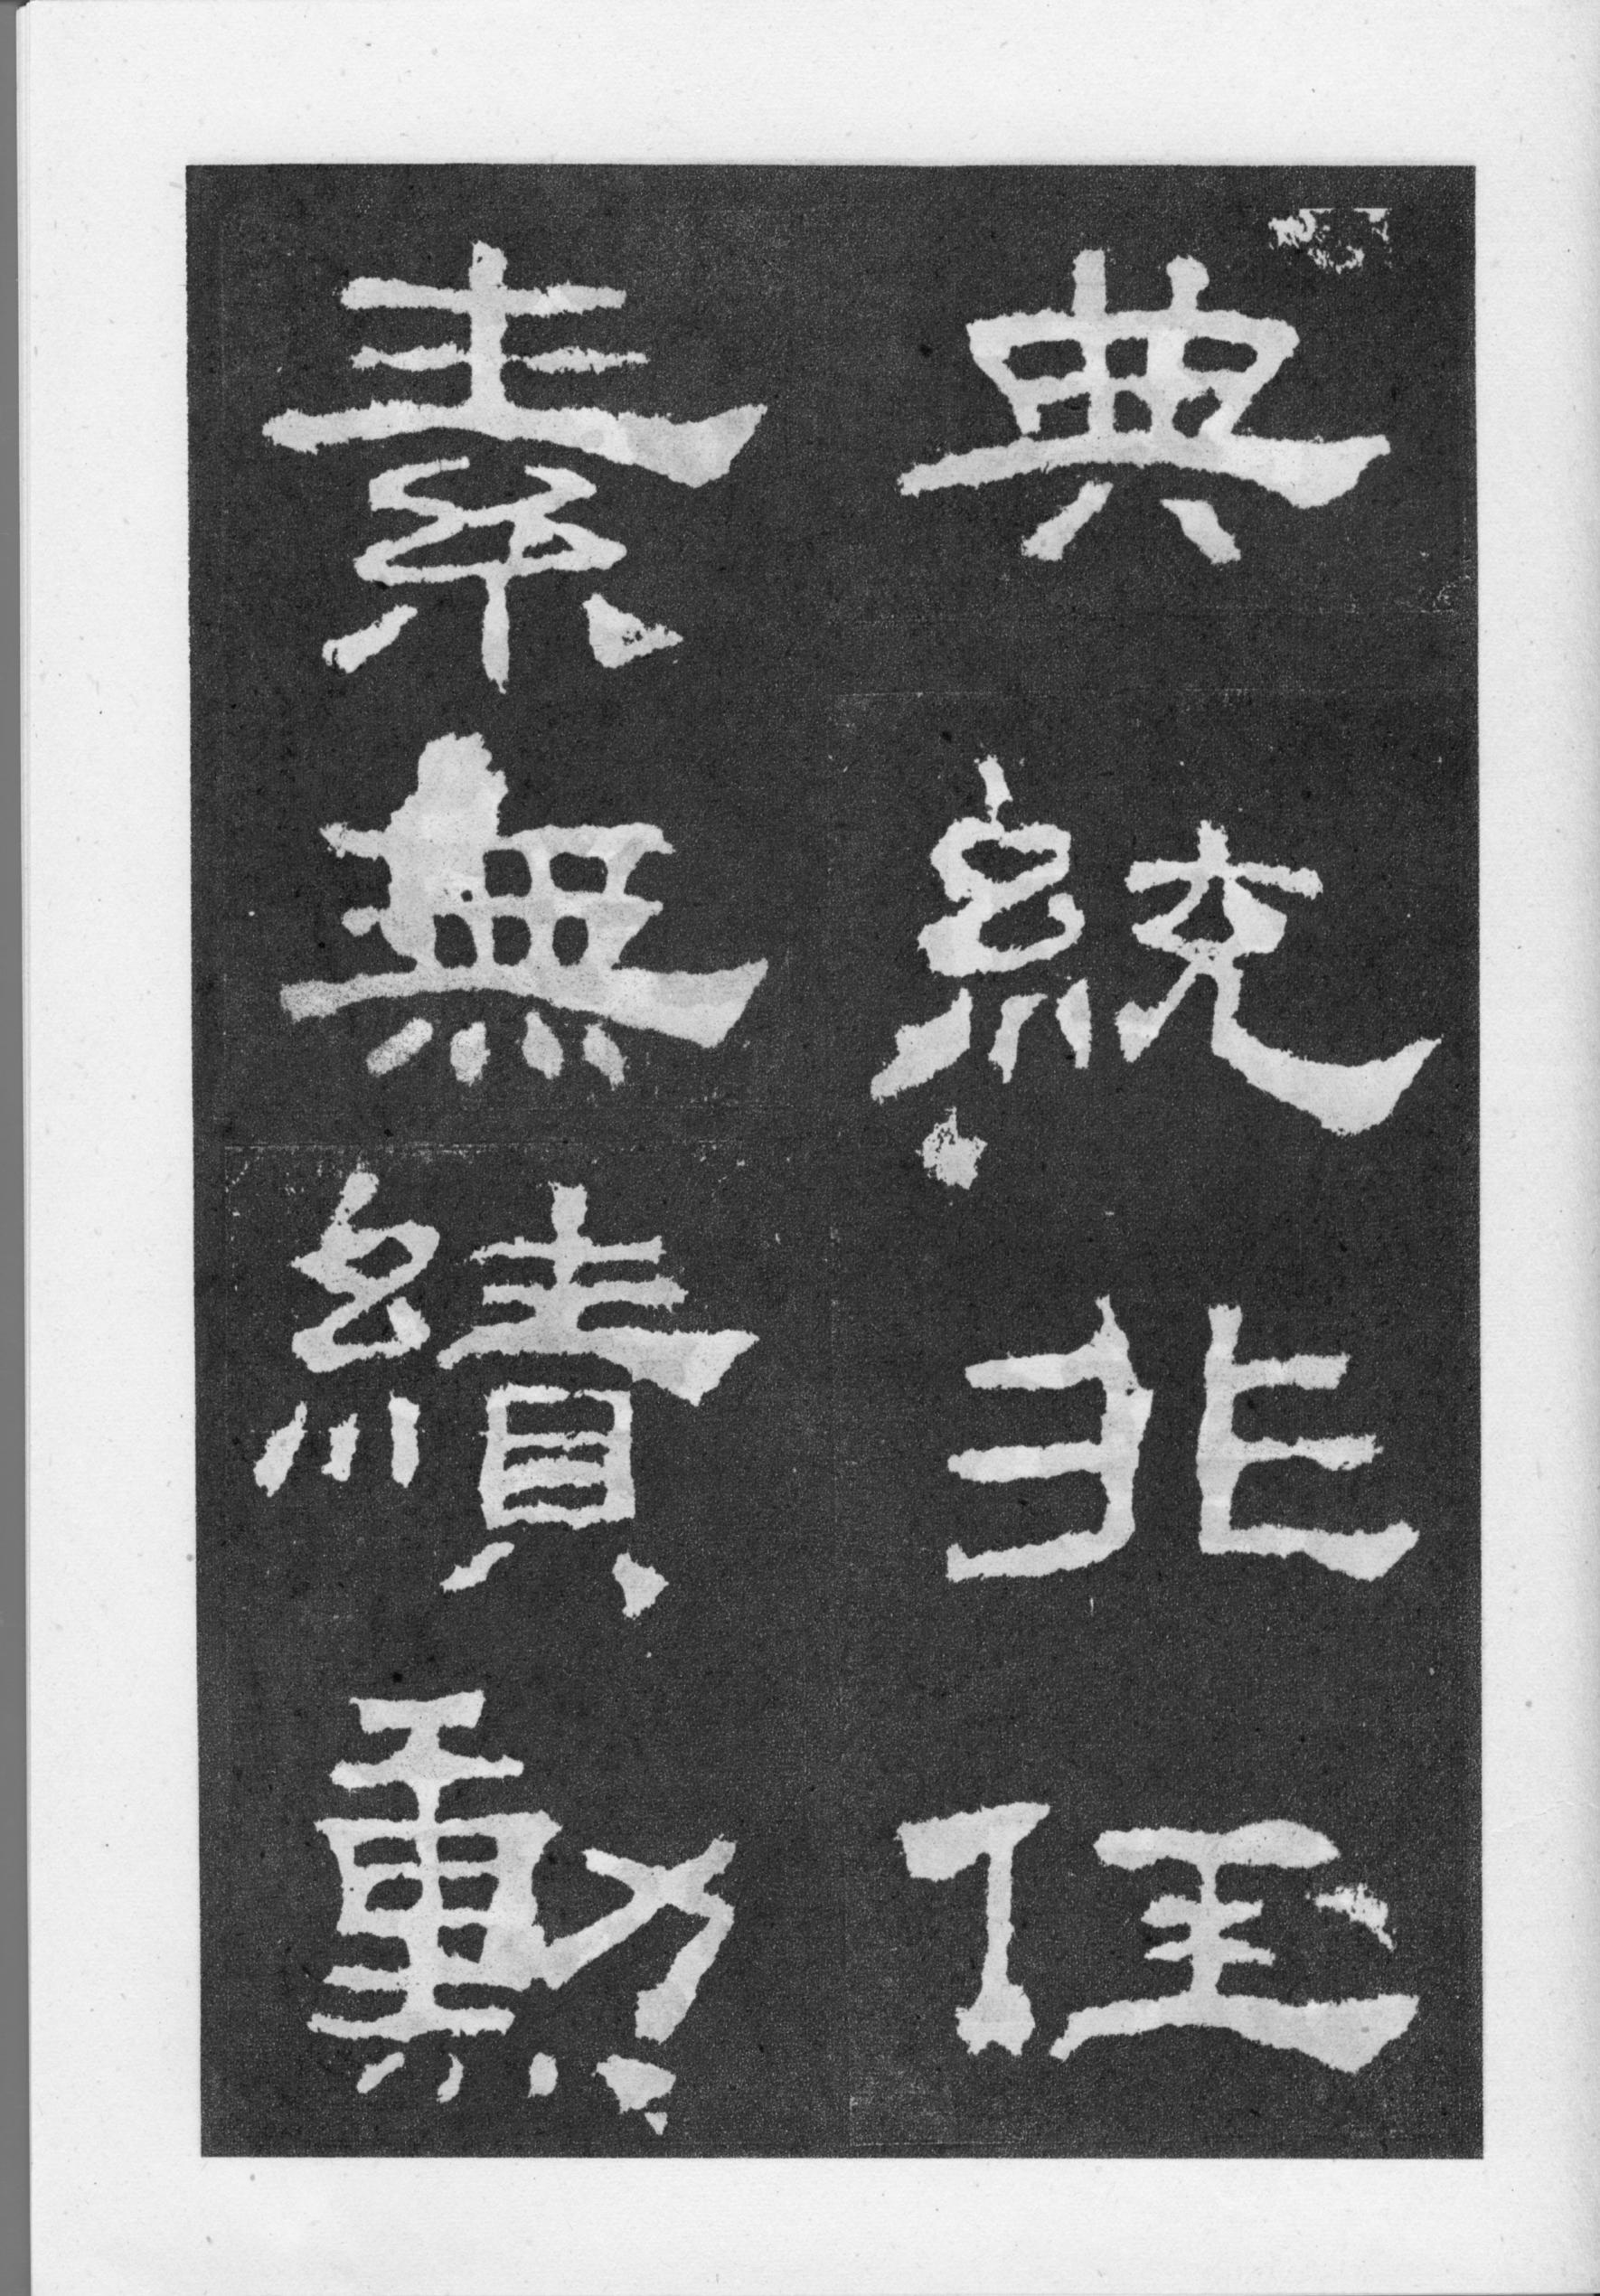 典統非任
素無績勳